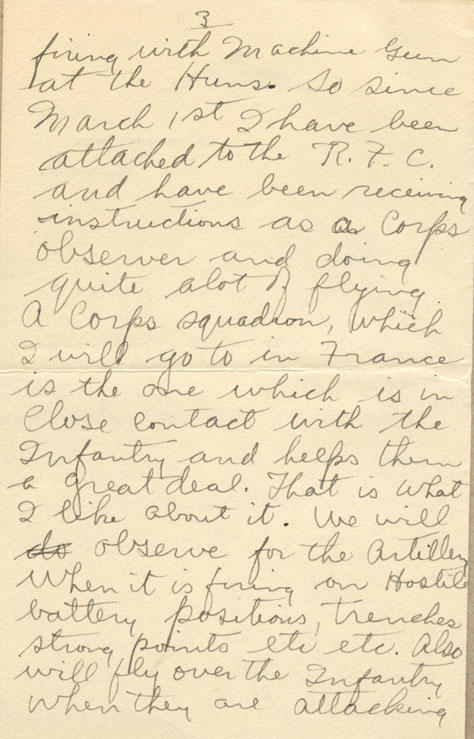 3
firing with Machine Gun
at the Huns. So since
March 1st I have been
attached to the R.F.C.
and have been receiving
instructions as a Corps
observer and doing
quite alot of flying.
A Corps squadron, which
I will go to in France
is the one which is in
close contact with the
Infantry and helps them
a great deal. That is what
I like about it. We will
do observe for the Artillery
when it is firing on Hostile
battery positions, trenches
strong points etc etc. Also
will fly over the Infantry
when they are attacking